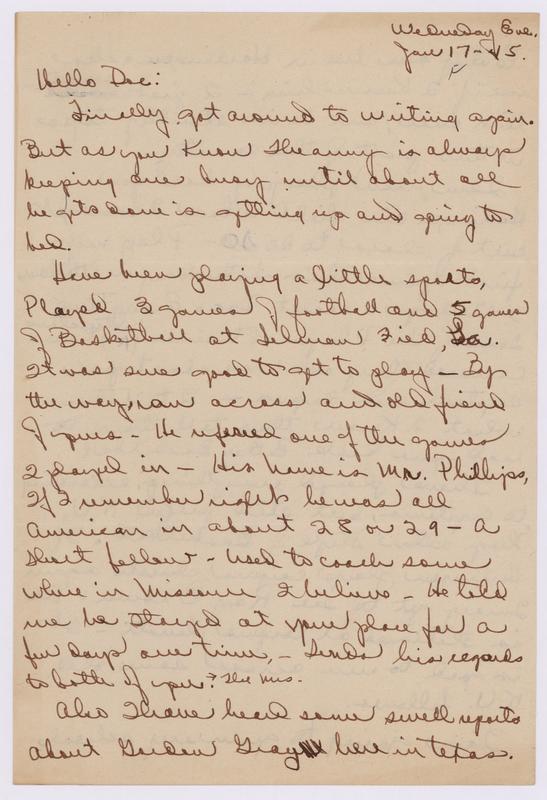 Wednesday Eve.
Jan 17-45.
Hello Doc:
Finally got around to writing again.
But as you know the army is always
keeping one busy until about all
he gts done is getting up and going to
bed.
Have been playing a little sports,
Played 3 games of football and 5 games
of Basketball at Selman Field, La.
It was sure good to get to play - By
the way, ran across and old friend
of yours - He refereed one of the games
I played in - His name is Mr. Phillips,
If I remember right he was all
American in about 28 or 29 - A
short fellow - used to coach some
where in Missouri I believe - He told
me he stayed at your place for a
few days one time, - Sends his regards
to both of you? The Mrs.
Also I have heard some swell reports
about Gordon Gray here in Texas.